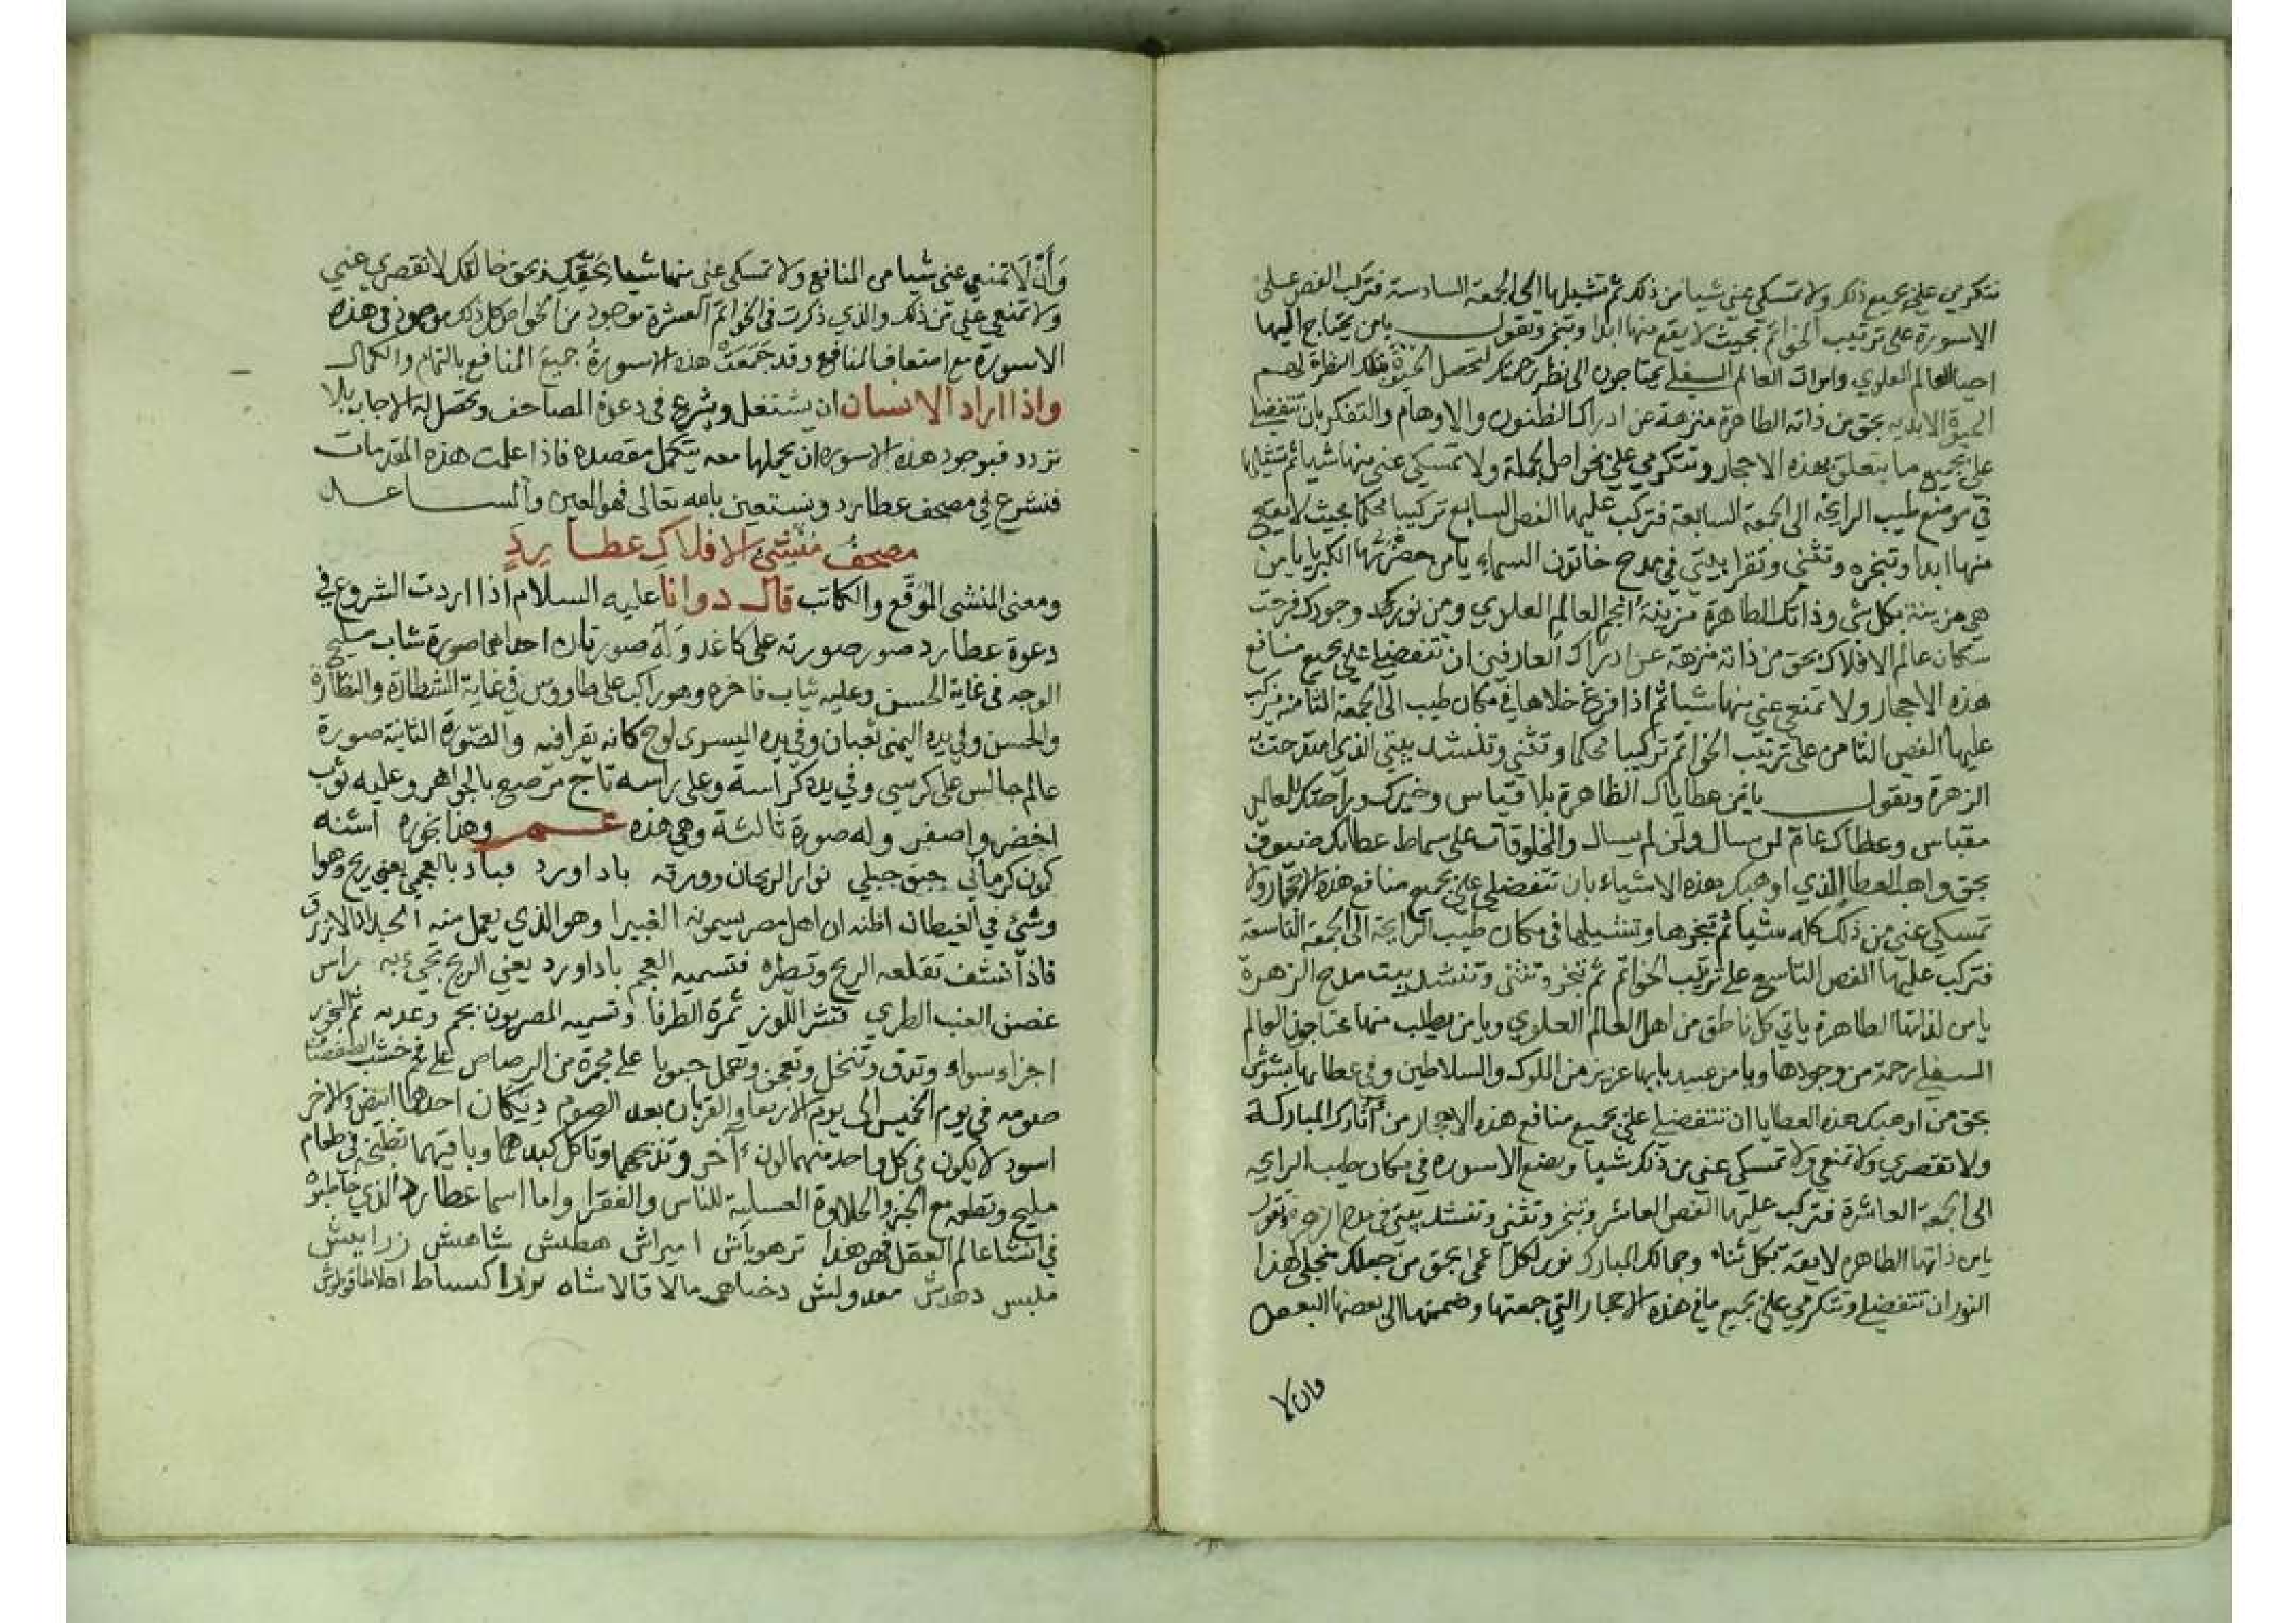 تتكرمي علي بجميع ذلك ولا تمسكي عني شيا من ذلك ثم تشيلها الى الجمعة السادسة فتركب الفص على
الاسورة على ترتيب الخواتم بحيث لا يقع منها ابدا وتبخر وتقول يا من يحتاج اليها
احيا العالم العلوي واموات العالم السفلي يحتاجون الى نظر لتحصل لهم
الحيوة الابدية بحق من ذاته الطاهرة منزهة عن ادراك الظنون والاوهام والتفكر بان تتفضلي
علي بجميع ما يتعلق بهذه الاحجار وتتكرمي علي بخواص الجملة ولا تمسكي عني منها شيا ثم تشيلها
في موضع طيب الرايحة الى الجمعة السابعة فتركب عليها الفص السابع تركيبا محكما بحيث لا يقع
منها ابدا وتبخره وتثني وتقرا بيتي في مدح خاتون السماء يا من حضرتها الكبريا يا من
هي مزينة بكل شي وذاتك الطاهرة مزينة انجم العالم العلوي ومن نورك وجودك فرحت
سكان عالم الافلاك بحق من ذاته منزهة عن ادراك العارفين ان تتفضلي علي بجميع منافع
هذه الاحجار ولا تمنعي عني منها شيا ثم اذا فرغ خلاها في مكان طيب الى الجمعة الثامنة يركب
عليها الفص الثامن على ترتيب الخواتم تركيبا محكما وتثني وتنشد بيتي الذي امتدحت
الزهرة وتقول يا من عطاياك الظاهرة بلا قياس وخيرك وراحتك للعالمين
مقباس وعطاك عام لمن سال ولمن لم يسال والمخلوقات على سماط عطائك ضيوف
بحق واهب العطا الذي اوهبك بهذه الاشياء بان تتفضلي علي بجميع منافع هذه الاحجار ولا
تمسكي عني من ذلك كله شيا ثم تبخرها وتشيلها في مكان طيب الرايحة الى الجمعة التاسعة
فتركب عليها الفص التاسع على ترتيب الخواتم ثم تبخر وتثني وتنشد بيت مدح الزهرة
يا من لذاتها الطاهرة ياتي كل ناطق من اهل العالم العلوي ويا من يطلب منها محتاجون العالم
السفلي رحمة من وجودها ويا من عبيد بابها عزيز من الملوك والسلاطين وفي عطايها
بحق من اوهبك هذه العطايا ان تتفضلي علي بجميع منافع هذه الاحجار من آثارك المباركة
ولا تقصري ولا تمنعي ولا تمسكي عني من ذلك شيا ويضع الاسورة في مكان طيب الرايحة
الى الجمعة العاشرة فتركب عليها الفص العاشر وتبخر وتثني وتنشد بيتي في مدح الزهرة وتقول
يا من ذاتها الطاهرة لايقة بكل ثناء وجمالك المبارك نور لكل اعمى بحق من جعلك محلى هذا
النور ان تتفضلي وتتكرمي علي بجميع ما في هذه الاحجار التي جمعتها وضممتها الى بعضها البعض
وان لا
وان لا تمنعي عني شيا من المنافع ولا تمسكي عني منها شيا بحقك وبحق خالقك لا تقصري عني
ولا تمنعي عني من ذلك والذي ذكرت في الخواتم العشرة موجود من الخواص كل ذلك موجود في هذه
الاسورة مع اضعاف المنافع وقد جمعت هذه الاسورة جميع المنافع بالتمام والكمال
واذا اراد الانسان ان يشتغل ويشرع في دعوة المصاحف وتحصل له الاجابة بلا
تردد فبوجود هذه الاسورة ان يحملها معه يتكمل مقصده فاذا علمت هذه المقدمات
فنشرع في مصحف عطارد ونستعين بالله تعالى فهو المعين والمساعد
مصحف منشئ الافلاك عطارد
ومعنى المنشي الموقع والكاتب قال دوانا عليه السلام اذا اردت الشروع في
دعوة عطارد صور صورته على كاغد وله صورتان احداهما صورة شاب مليح
الوجه في غاية الحسن وعليه ثياب فاخرة وهو راكب على طاووس في غاية الشطارة والنظارة
والحسن وفي يده اليمنى ثعبان وفي يده اليسرى لوح كانه يقرا فيه والصورة الثانية صورة
عالم جالس على كرسي وفي يده كراسة وعلى راسه تاج مرصع بالجواهر وعليه ثوب
اخضر واصفر وله صورة ثالثة وهي هذه وهذا بخوره اشنه
كمون كرماني حبق جبلي نوار الريحان وورقه باداورد فباد بالعجمي يعني ريح وهوا
وشئ في الغيطان اظنه ان اهل مصر يسمونه الغبيرا وهو الذي يعمل منه الازرق
فاذا نشف تقلعه الريح وتطيره فتسميه العجم باداورد يعني الريح تجيء به راس
غصن العنب الطري قشر اللوز ثمرة الطرفا وتسميه المصريون ثم البخور
اجزاء سواء وتدق وتنخل وتعجن وتعمل حبوبا على مجمرة من الرصاص على فحم خشب الصفصاف
صومه في يوم الخميس الى يوم الاربعا والقربان بعد الصوم ديكان احدهما ابيض والاخر
اسود لا يكون في كل واحد منهما لون آخر وتذبحهما وتاكل كبدهما وباقيهما تطبخه في طعام
مليح وتطعمه مع الخبز والحلاوة العسلية للناس والفقرا واما اسما عطارد الذي خاطبوه
في انشا عالم العقل فهو هذا ترهوياش اميراش هطلش شاهش زرابيش
ملبس دهدش معدولش دخناهي مالا قالا شاه برادا كساط